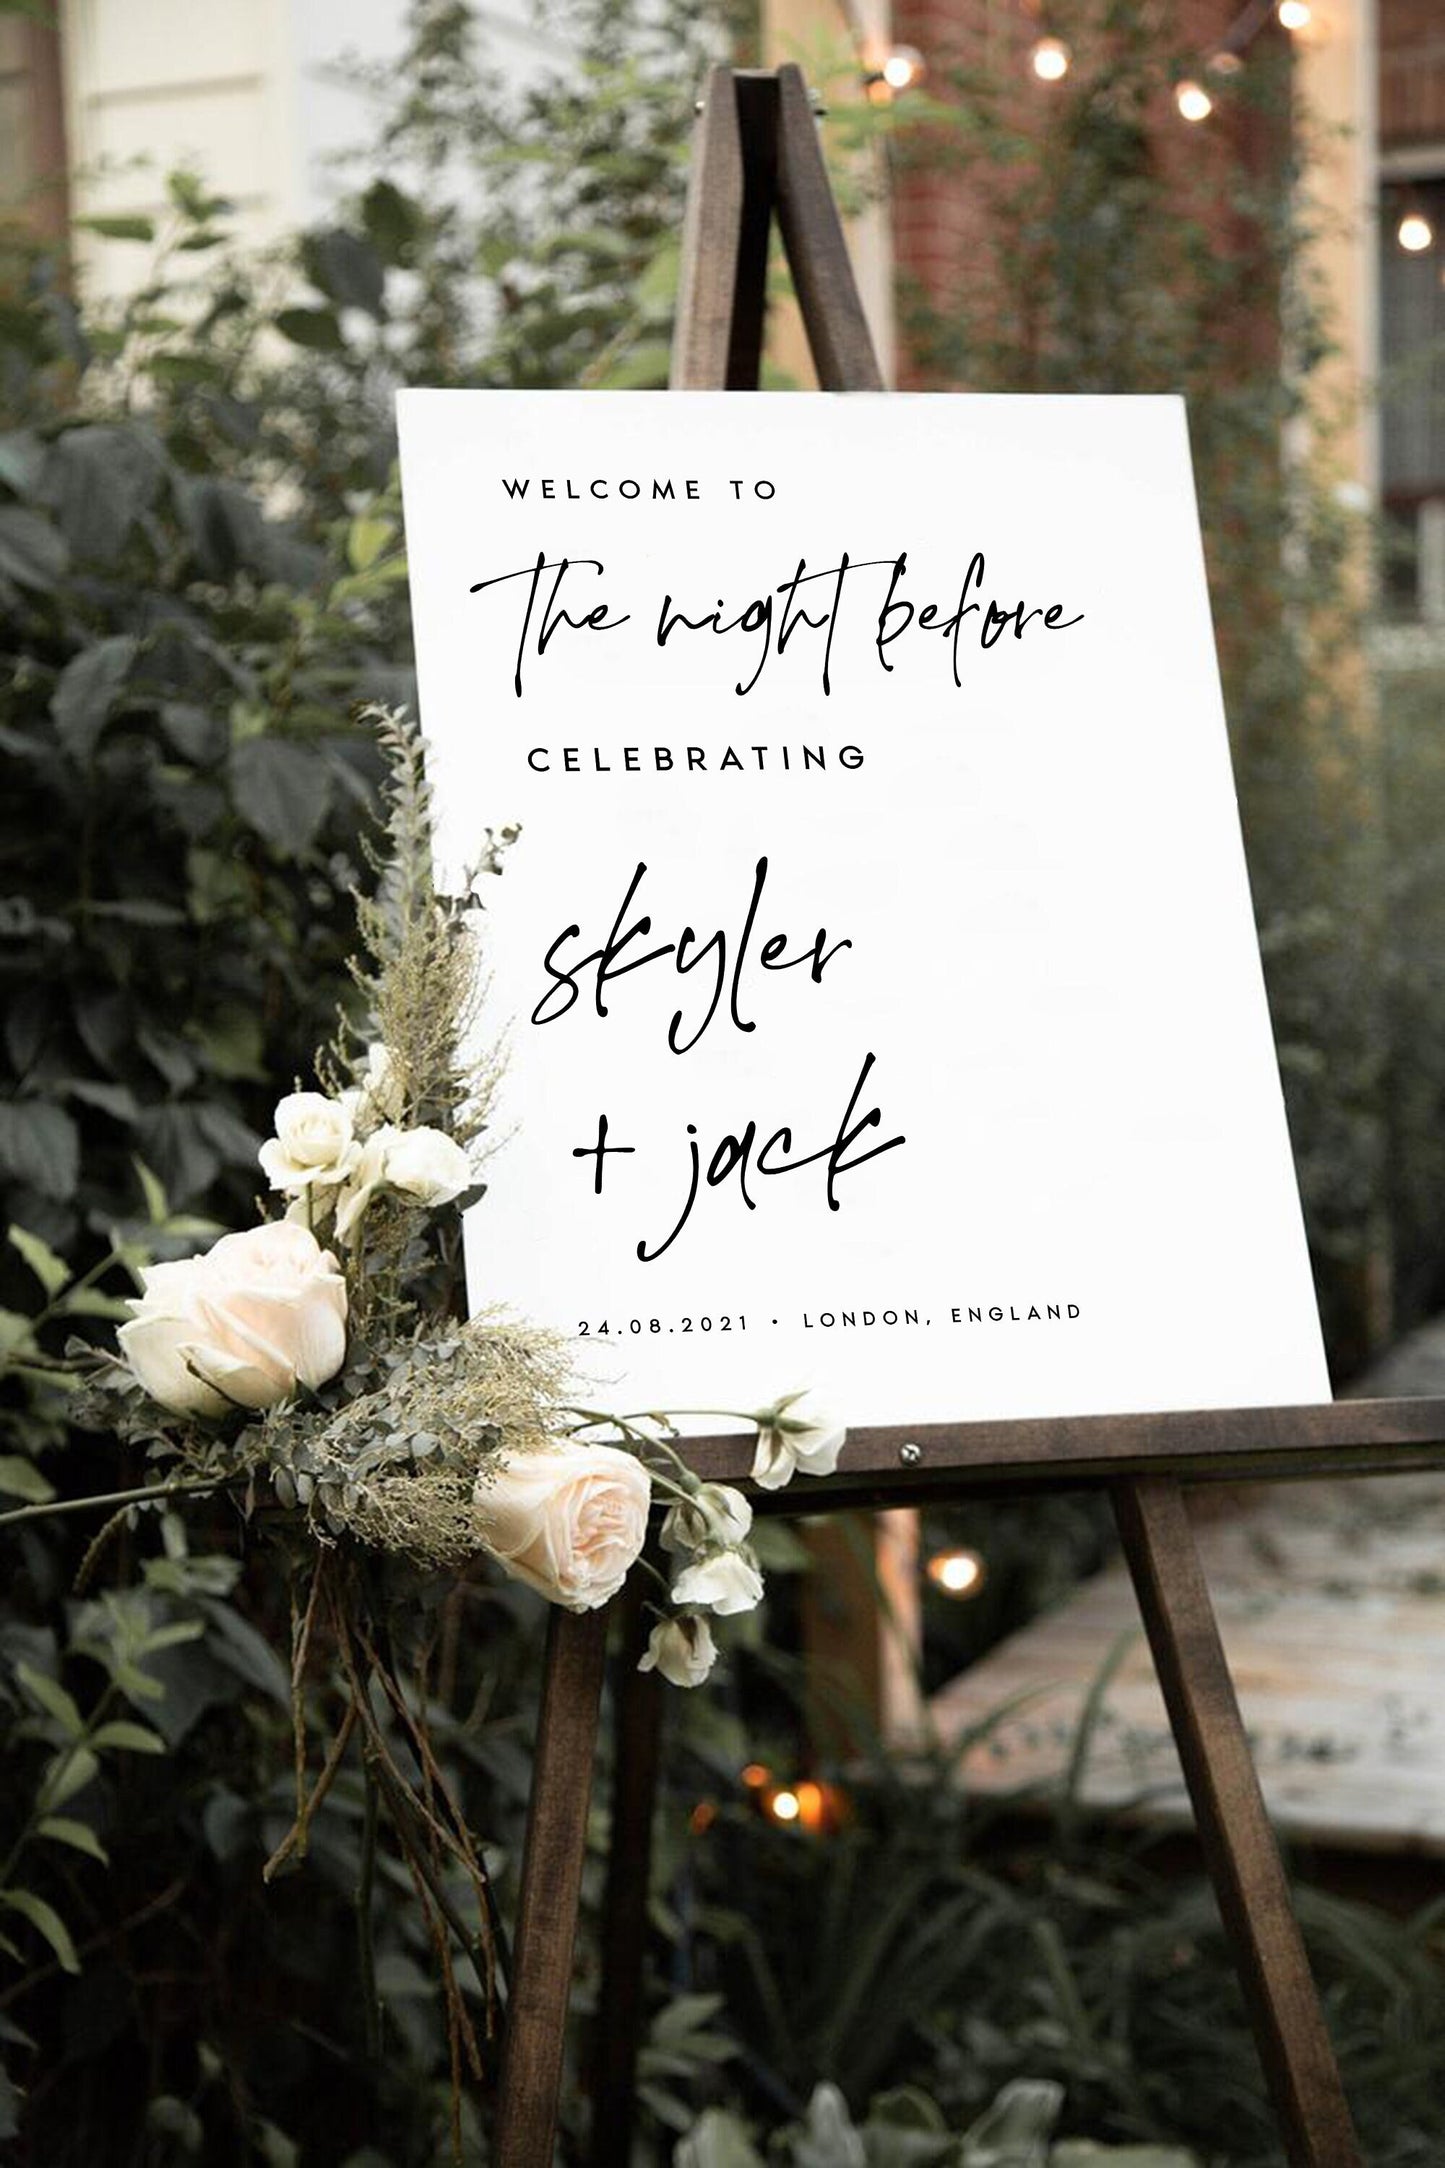 WELCOME TO
the night before
CELEBRATING
skyler
+ jack
24.08.2021 • LONDON, ENGLAND